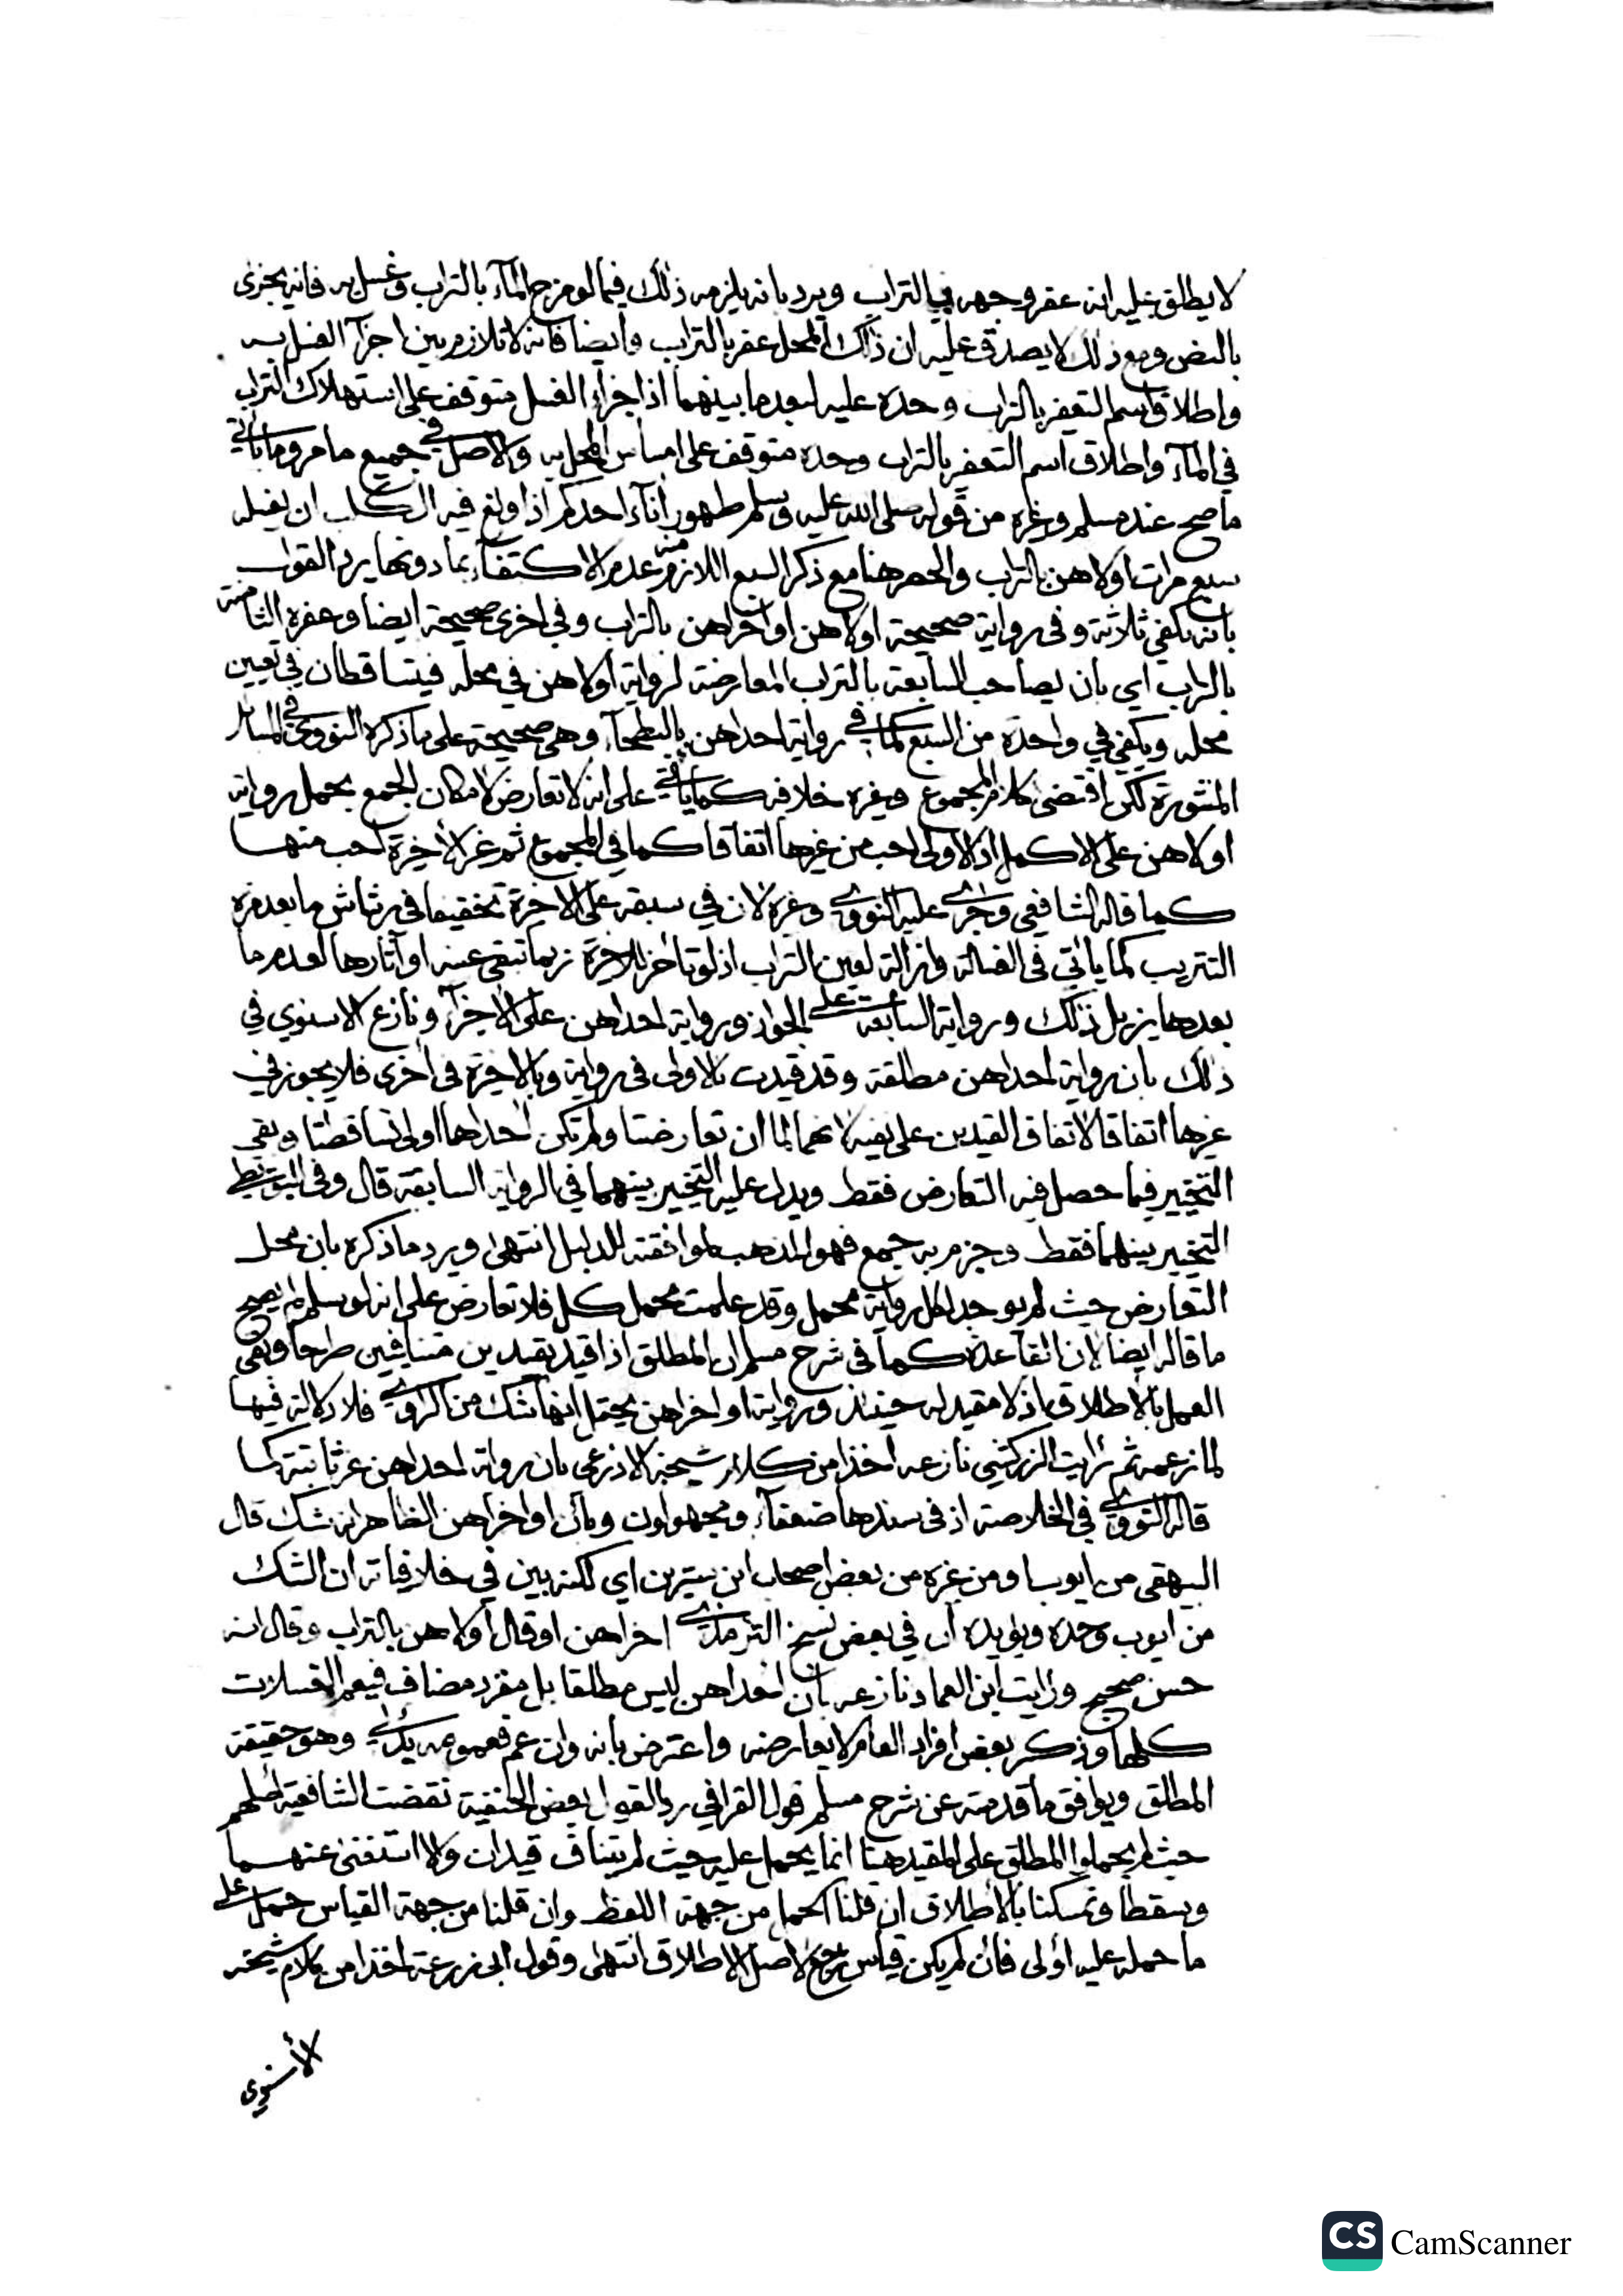 لا يطلق عليه انه عفر وجهه في التراب ويرد بانه يلزمه ذلك فيما لو مزج المآء بالتراب وغسل به فانه يجزى
بالنص ومع ذلك لا يصدق عليه ان ذلك المحل عفر بالتراب وايضا فانه لا تلازم بين اجزآ الغسل به
واطلاق اسم التعفير بالتراب وحده عليه لبعد ما بينهما اذ اجزاء الغسل متوقف على استهلاك التراب
في المآء واطلاق اسم التعفير بالتراب وحده متوقف على امساس المحل به والاصل في جميع ما مر وما يأتي
ما صح عند مسلم وغيره من قوله صلى الله عليه وسلم طهور انآء احدكم اذا ولغ فيه الكلب ان يغسله
سبع مرات اولاهن بالتراب والحصر هنا مع ذكر السبع اللازم منه عدم الاكتفآء بما دونها يرد القول
بانه يكفي ثلاثة وفي رواية صحيحة اولاهن او اخراهن بالتراب وفي اخرى صحيحة ايضا وعفروه الثامنة
بالتراب اي بان يصاحب السابعة بالتراب المعارضة لرواية اولاهن في محله فيتساقطان في تعيين
محله ويكفي في واحدة من السبع كما في رواية احداهن بالبطحآء وهي صحيحة على ما ذكره النووي في المسائل
المنثورة لكن اقتضى كلام المجموع وغيره خلافه كما يأتي على انه لا تعارض لامكان الجمع بحمل رواية
اولاهن على الاكمل اذ الاولى احب من غيرها اتفاقا كما في المجموع ثم غير الأخيرة احب منها
كما قاله الشافعي وجرى عليه النووي وغيره لان في سبقه على الاخرة تخفيفا في رشاش ما بعد مرة
التتريب كما يأتي في الغسالة وازالة لعين التراب اذ لو تاخر للاخرة ربما تبقى عينه او آثارها لعدم ما
بعدها يزيل ذلك ورواية السابعة على الجواز ورواية احداهن على الاجزآء ونازع الاسنوي في
ذلك بان رواية احداهن مطلقة وقد قيدت بالاولى في رواية وبالاخرة في اخرى فلا يجوز في
غيرها اتفاقا لاتفاق القيدين على نفيه لانهما لما ان تعارضتا ولم تكن احداهما اولى تساقطتا وبقي
التخيير فيما حصل فيه التعارض فقط ويدل عليه التخيير بينهما في الرواية السابقة قال وفي البويطي
التخيير بينهما فقط وجزم به جمع فهو المذهب لموافقته للدليل انتهى ويرد ما ذكره بان محل
التعارض حيث لم يوجد لكل رواية محمل وقد علمت محمل كل فلا تعارض على انه لو سلم لم يصح
ما قاله ايضا لان القاعدة كما في شرح مسلم ان المطلق اذا قيد بقيدين متنافيين طرحا وبقى
العمل بالاطلاق اذ لا مقيد له حينئذ ورواية او اخراهن يحتمل انها شك من الراوي فلا دلالة فيها
لما زعمه ثم رايت الزركشي نازعه اخذا من كلام شيخه الاذرعي بان رواية احداهن غير ثابتة كما
قاله النووي في الخلاصة اذ في سندها ضعفآء ومجهولون وبان او اخراهن الظاهر انه شك قال
البيهقي من ايوب او من غيره من بعض اصحاب ابن سيرين اي لكنه بين في خلافياته ان الشك
من ايوب وحده ويؤيده ان في بعض نسخ الترمذي اخراهن او قال اولاهن بالتراب وقال انه
حسن صحيح ورايت ابن العماد نازعه بان احداهن ليس مطلقا بل مفرد مضاف فيعم الغسلات
كلها وذكر بعض افراد العام لا يعارضه واعترض بانه وان عم فعمومه بدلي وهو حقيقة
المطلق ويوافق ما قدمته عن شرح مسلم قول القرافي ردا لقول بعض الحنفية نقضت الشافعية اصلهم
حيث لم يحملوا المطلق على المقيد هنا انما يحمل عليه حيث لم يتناف قيدان والا استغنى عنهما
وسقطا وتمسكنا بالاطلاق ان قلنا الحمل من جهة اللفظ وان قلنا من جهة القياس حمل على
ما حمله عليه أولى فان لم يكن قياس رجع لاصل الاطلاق انتهى وقول ابي زرعة اخذا من كلام شيخه
الأسنوي
CS CamScanner